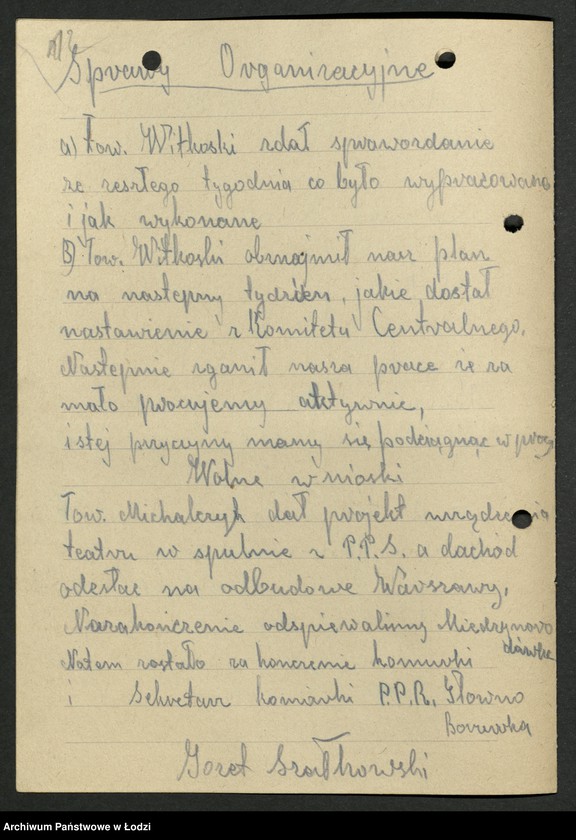 Sprawy Organizacyjne
a) tow. Witkoski zdał sprawozdanie
ze zeszłego tygodnia co było wypracowano
i jak wykonane
B) Tow. Witkoski obznajmił nasz plan
na następny tydzień, jakie dostał
nastawienie z Komitetu Centralnego.
Następnie zganił nasza prace że za
mało pracujemy aktywnie,
i stej przyczyny mamy się podciągnąć w pracy
Wolne wnioski
Tow. Michalczyk dał projekt urządzenia
teatru w spulnie z P.P.S. a dachód
odesłać na odbudowe Warszawy,
Nazakończenie odspiewaliśmy Międzynaro
dówke
Natem zostało za konczenie komurki
i Sekretarz komórki P.P.R. Głowno
Borówka
Józef Szałkowski
Archiwum Państwowe w Łodzi